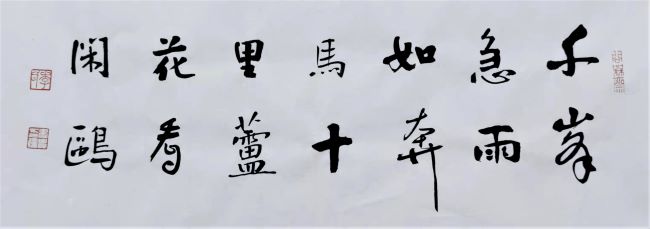 千峯
急雨
如奔
馬十
里蘆
花看
閑鷗